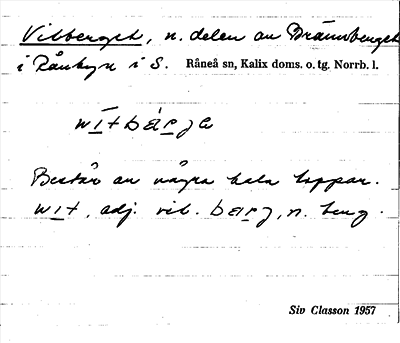 Vitberget, n. delen av Brännberget
i Rånbyn i S. Råneå sn, Kalix doms. o. tg. Norrb. l.
Består av några kala toppar.
wit, adj. vit. barj, n. berg.
Siv Classon 1957